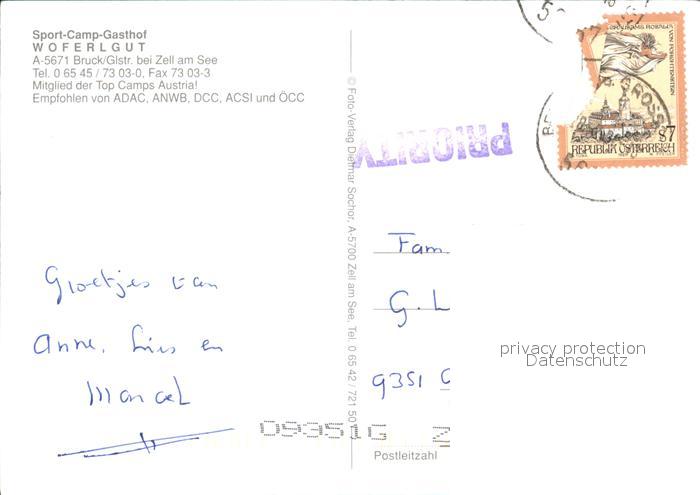 Sport-Camp-Gasthof
WOFERLGUT
A-5671 Bruck/Glstr. bei Zell am See
Tel. 0 65 45 / 73 03-0, Fax 73 03-3
Mitglied der Top Camps Austria!
Empfohlen von ADAC, ANWB, DCC, ACSI und ÖCC
© Foto-Verlag Dietmar Sochor, A-5700 Zell am See, Tel. 0 65 42 / 721 50
PRIORITY
S 7
REPUBLIK ÖSTERREICH
Groetjes van
Anne, Lies en
Marcel
Fam
G. L
9351 C
privacy protection
Datenschutz
Postleitzahl